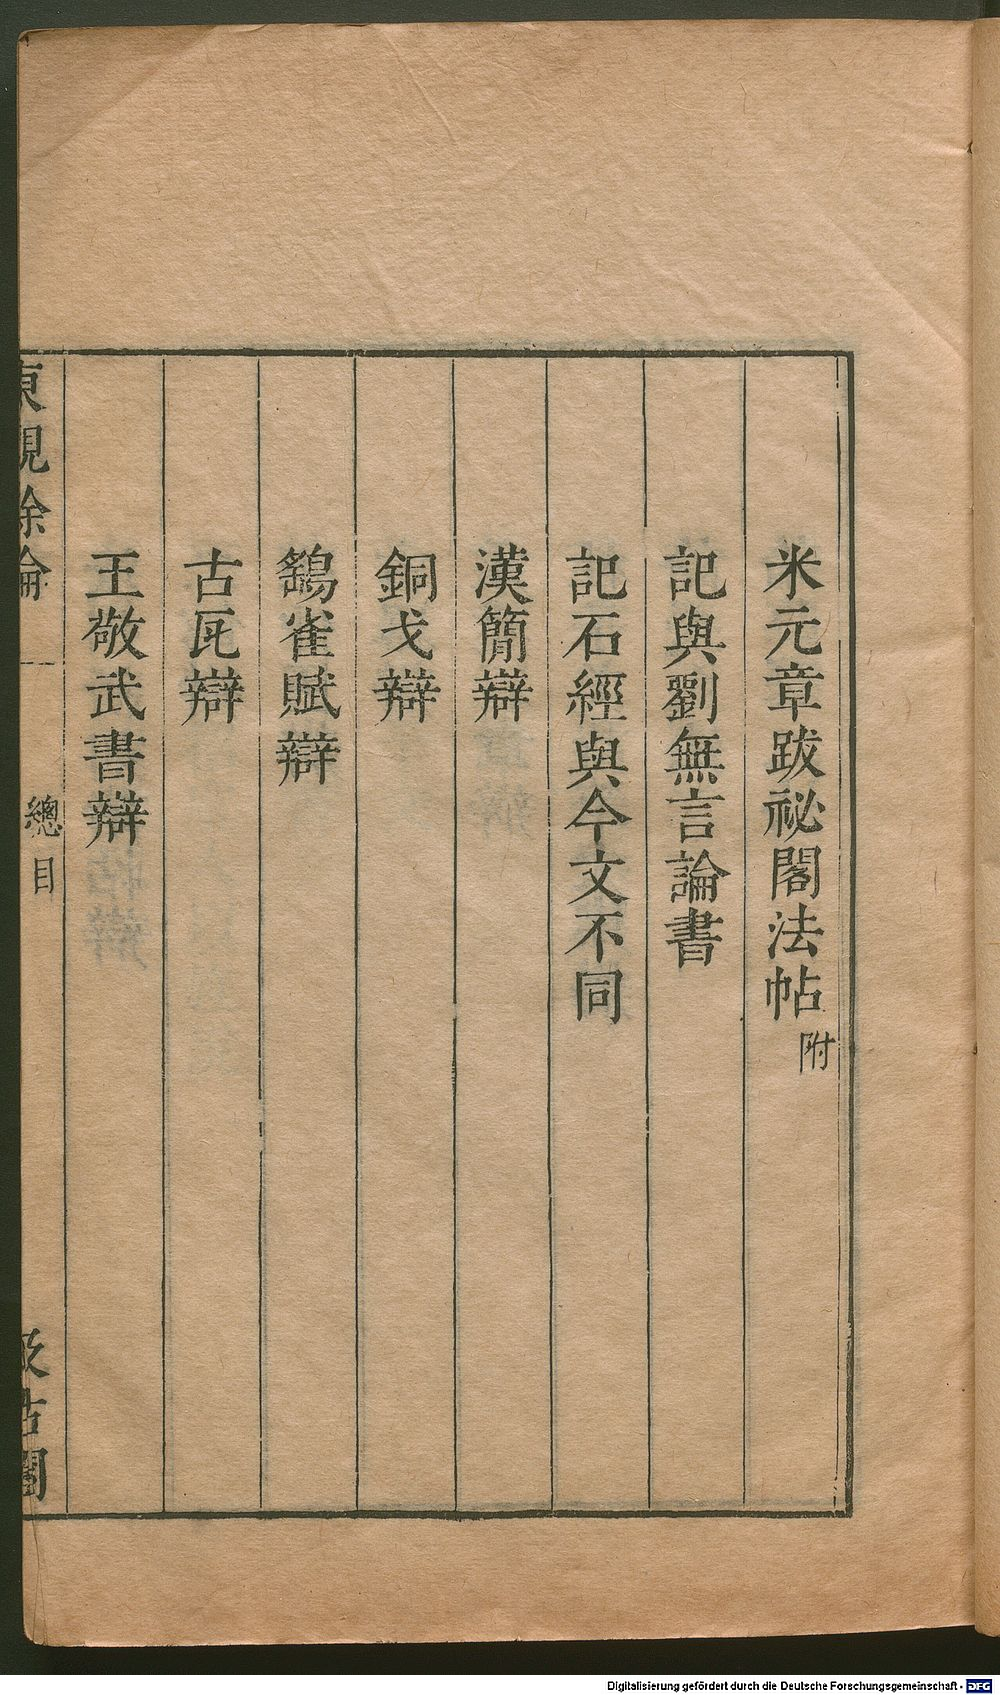 米元章跋祕閣法帖附
記與劉無言論書
記石經與今文不同
漢簡辯
銅戈辯
鵠雀賦辯
古瓦辯
王敬武書辯
東觀餘論
總目
汲古閣
Digitalisierung gefördert durch die Deutsche Forschungsgemeinschaft - DFG